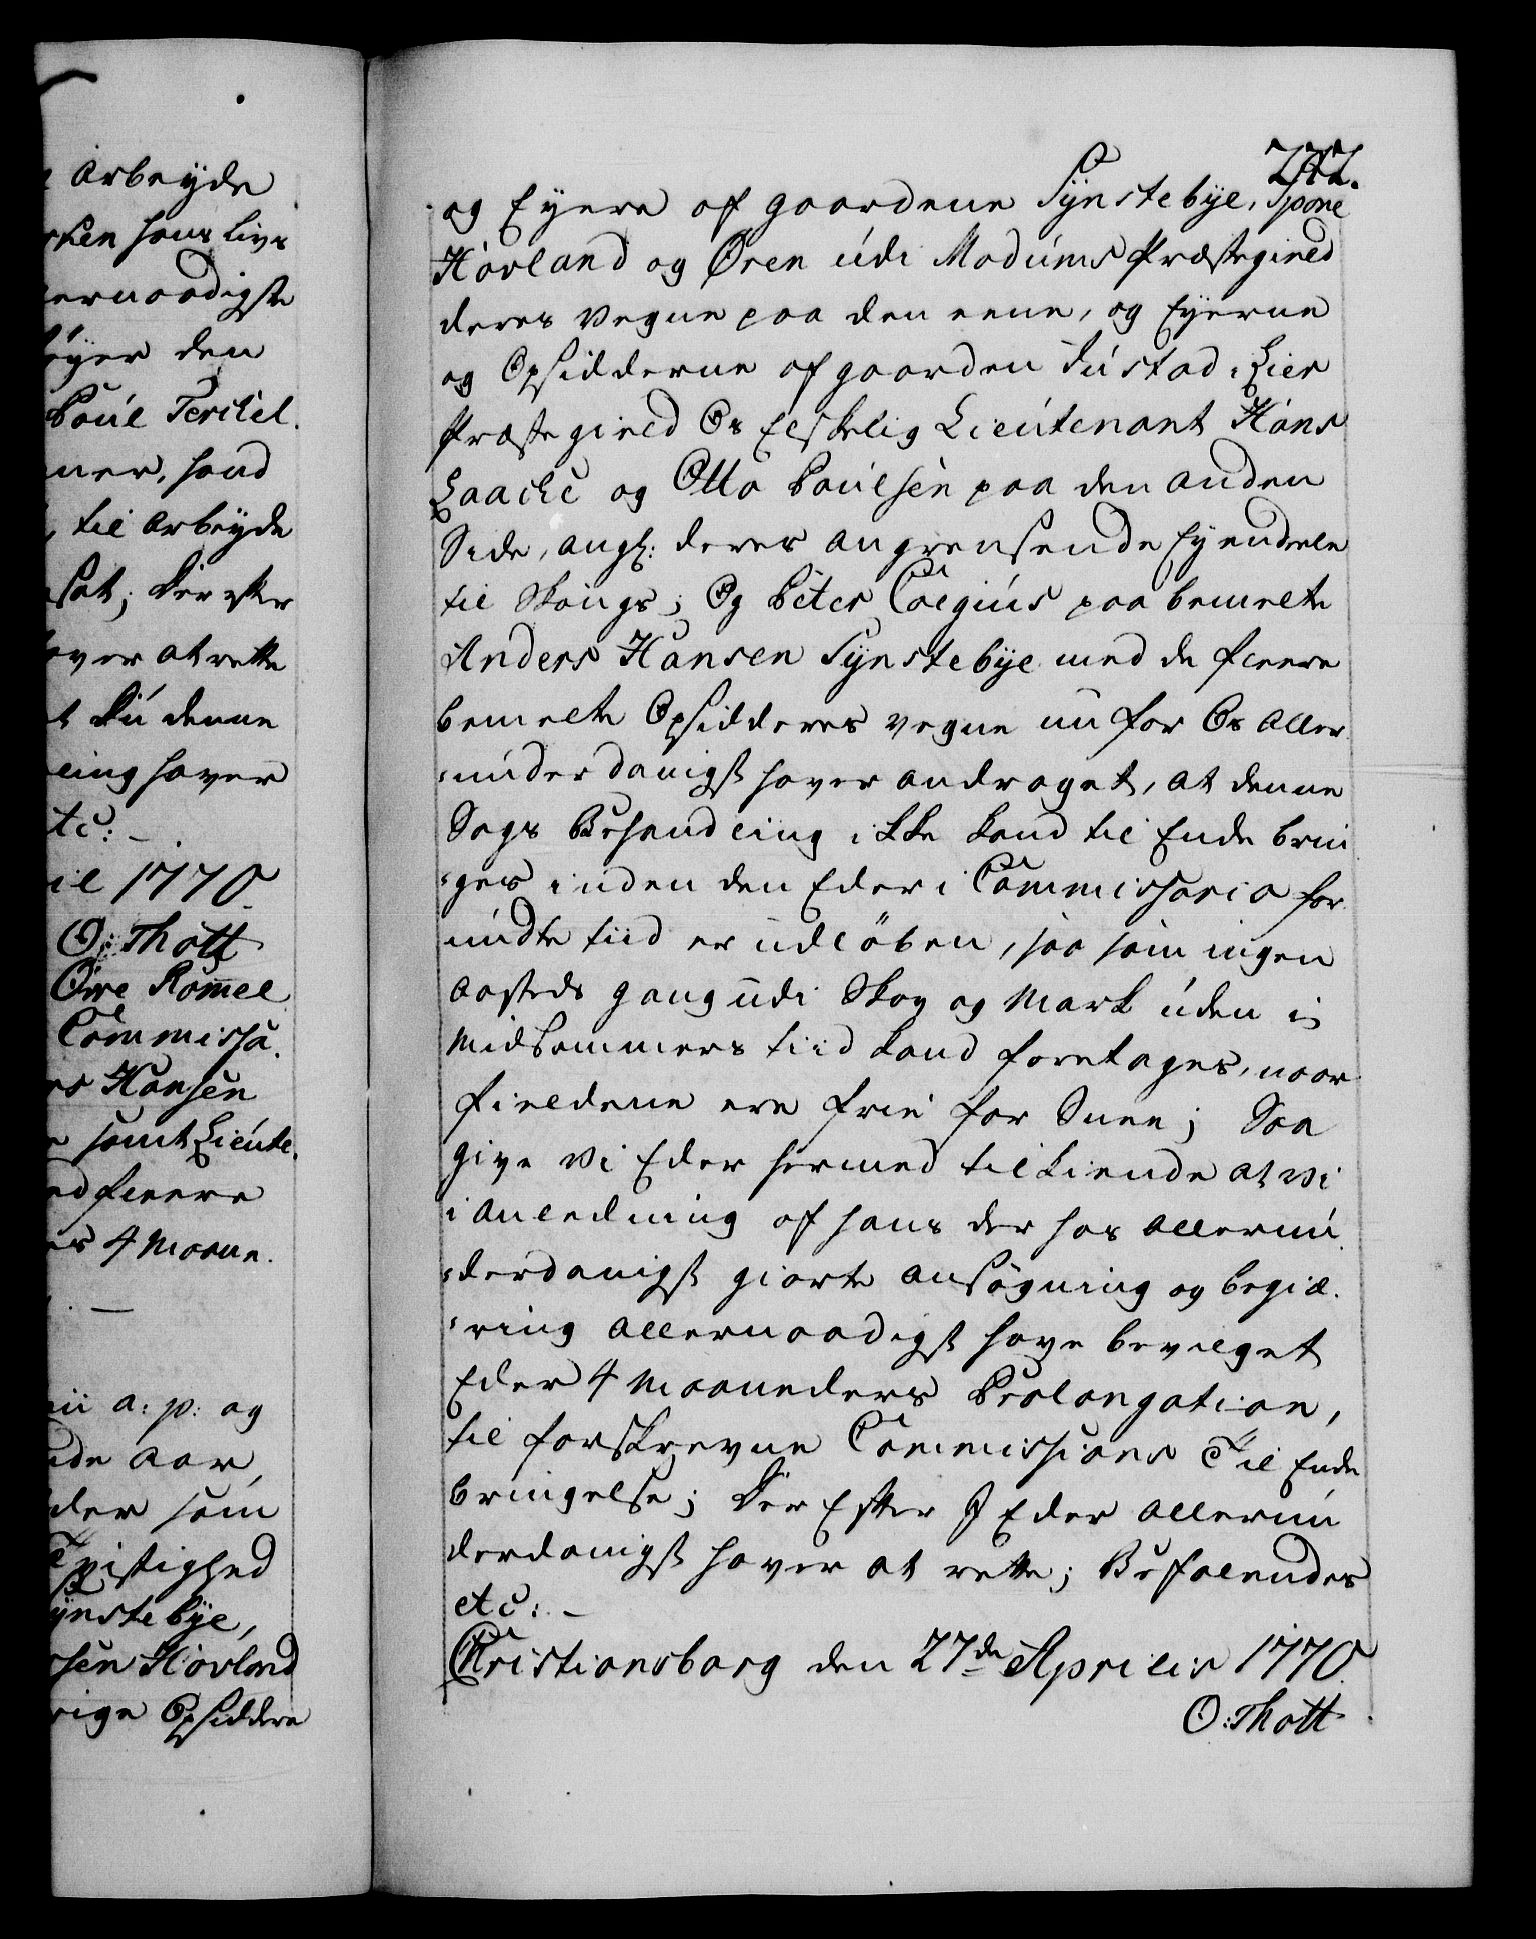 Arbeyde
hans Livs
ernaadigste
øyer den
Poul Terchel.
ner, hand
, til Arbeyde
sat; Der efter
aver at rette
Du denne
ling haver
etc: –
il 1770.
O: Thott
Ove Rommel
Commissa.
Hansen
samt Lieute.
fleere
4 Maane.
a: p: og
Aar,
der som
Tvistighed
ynstebÿe,
sen Hovland
rige Opsiddere
og Eyere af gaardene Synstebÿe, Spone
Hovland og Øren udi Modums Præstegield
deres vegne paa den eene, og Eyerne
og Opsidderne af gaarden Tustad i Lier
Præstegield Os Elskelig Lieutenant Hans
Laache og Otto Poulsen paa den anden
Side, angl: deres angrensende Eyendele
til Skougs; Og Peter Coegius paa bemelte
Anders Hansen Synstebÿe med de fleere
bemelte Opsidderes vegne nu for Os Aller
=underdanigst haver andraget, at denne
Sags Behandling ikke kand til Ende brin
=ges inden den Eder i Commissorio for
undte tiid er udløben, saa som ingen
Aasteds gang udi Skov og Mark uden i
Midsommers tiid kand foretages, naar
fieldene ere frie for Snee; Saa
give Vi Eder hermed tilkiende at Vi
i Anledning af hans der hos Allerun
=derdanigst giorte Ansøgning og begiæ.
=ring Allernaadigst have bevilget
Eder 4 Maaneders Prolongation,
til forskrevne Commissions Til Ende
bringelse; Der Efter I Eder Allerun
derdanigst haver at rette; Befalendes
etc: –
Christiansborg den 27de Aprilis 1770.
O: Thott